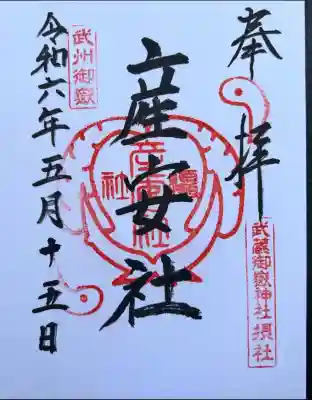 奉拝
武蔵御嶽神社摂社
産安社
武州御嶽
令和六年五月十五日